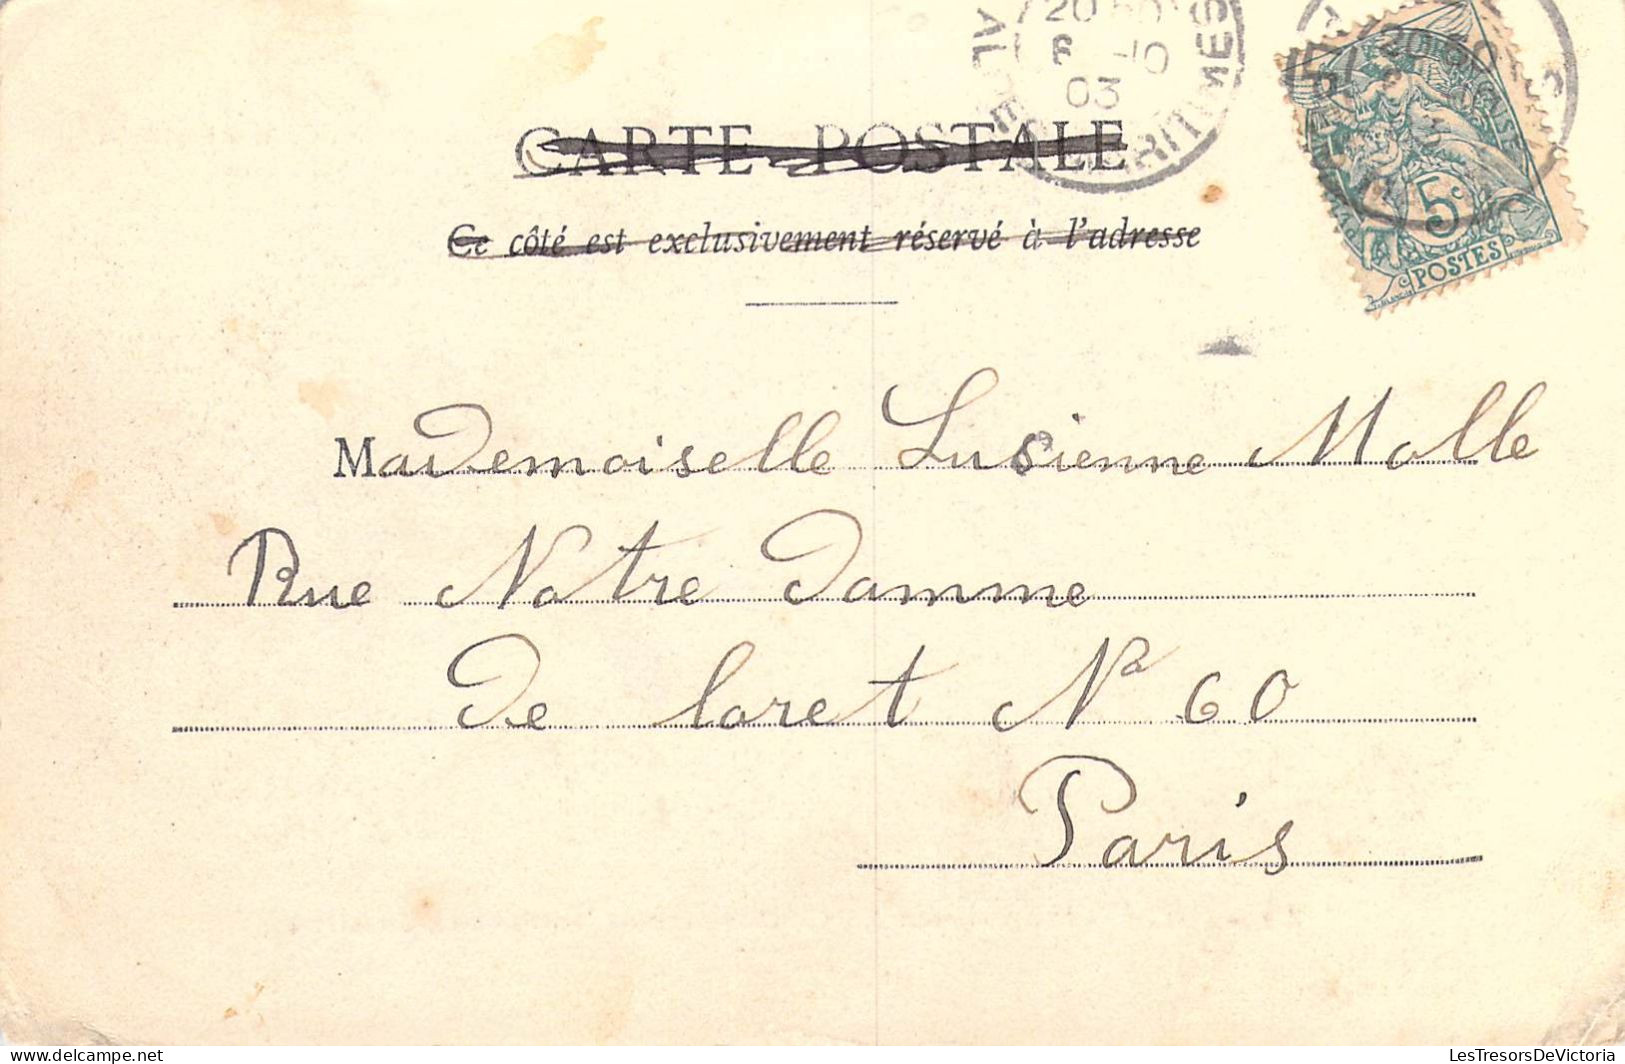 20 50
8 -10
03
ALPES MARITIMES
5c
POSTES
CARTE POSTALE
Ce côté est exclusivement réservé à l'adresse
Mademoiselle Lusienne Molle
Rue Notre Damme
De loret No 60
Paris
LesTresorsDeVictoria